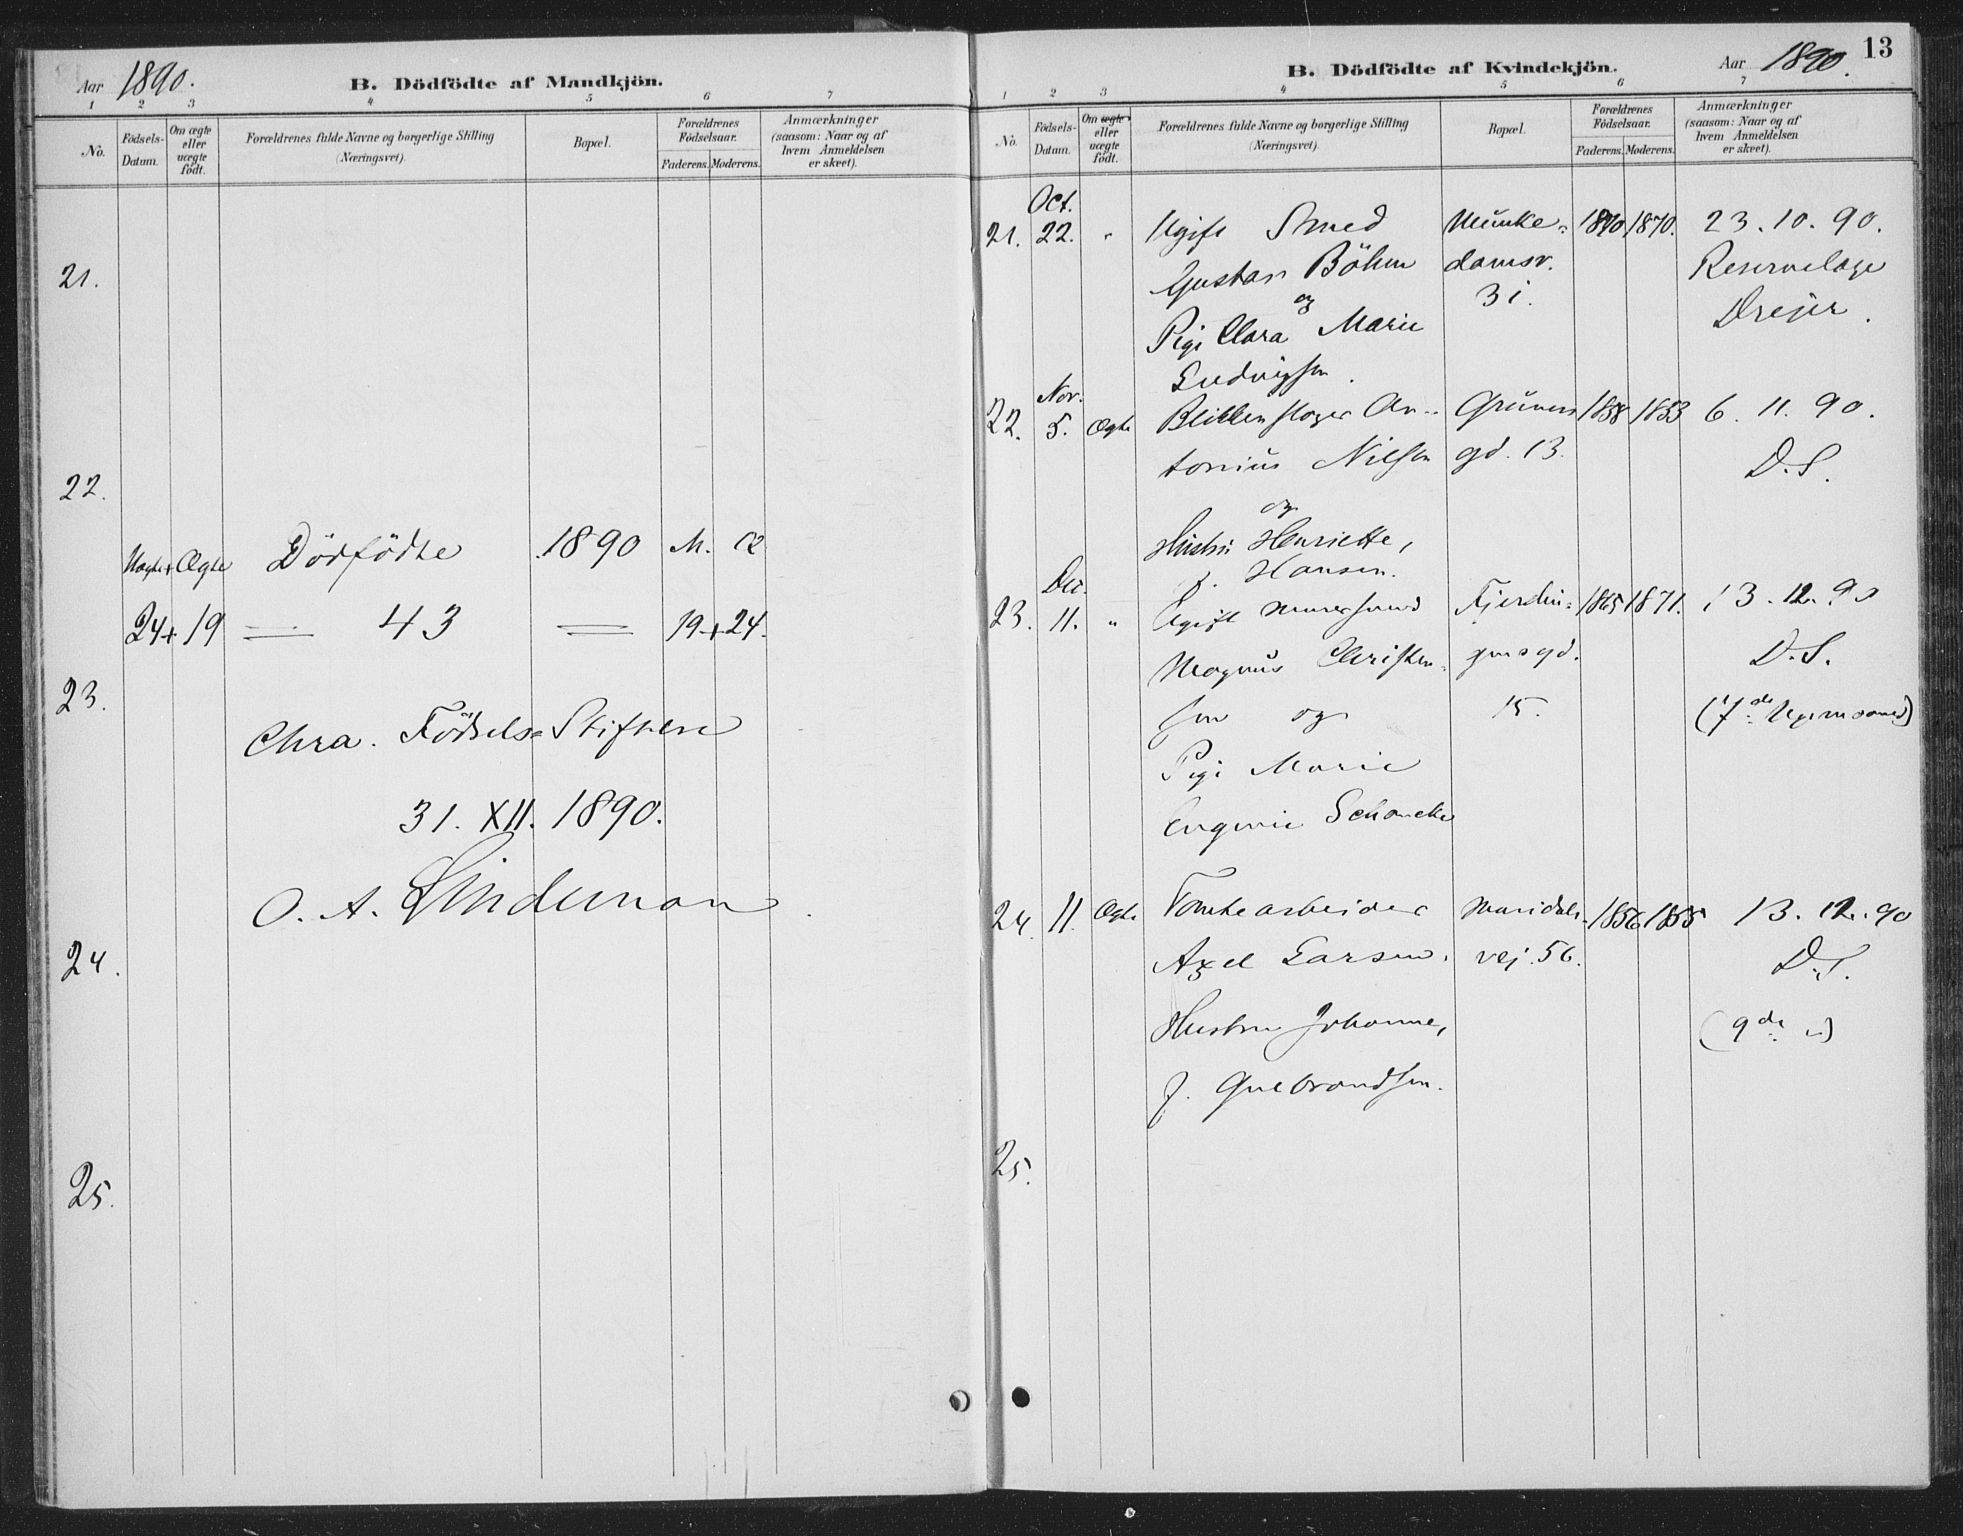 Aar 1890.
B. Dödfödte af Mandkjön.
1 2 3 4 5 6 7
No.
Födsels-
Datum.
Om ægte
eller
uægte
födt.
Forældrenes fulde Navne og borgerlige Stilling
(Næringsvei).
Bopæl.
Forældrenes
Födselsaar.
Faderens. Moderens.
Anmærkninger
(saasom: Naar og af
hvem Anmeldelsen
er skeet).
21.
22.
Uægte + Ægte Dödfödte 1890 M.
24 + 19 = 43 = 19 + 24.
23.
Chra. Födsels-Stiftelse
31. XII. 1890.
O. A. Lindeman
24.
25.
13
Aar 1890.
B. Dödfödte af Kvindekjön.
1 2 3 4 5 6 7
No.
Födsels-
Datum.
Om ægte
eller
uægte
födt.
Forældrenes fulde Navne og borgerlige Stilling
(Næringsvei).
Bopæl.
Forældrenes
Födselsaar.
Faderens. Moderens.
Anmærkninger
(saasom: Naar og af
hvem Anmeldelsen
er skeet).
Oct.
21. 22. " Ugift Smed Munke- 1870. 23.10.90.
Gustav Böhm damsv. Reservelæge
og 31. Drejer.
Pige Clara Marie
Ludvigsen.
Nov.
22. 5. Ægte Blikkenslager An- Grüners 1858 1853 6. 11. 90.
tonius Nilsen gd. 13. D.S.
og
Hustru Henriette,
f. Hansen.
Dec.
23. 11. " Ugift Murersvend Fjerdin- 1865 1871. 13.12.90
Magnus Christen- gensgd. D.S.
sen og 15. (7de
Pige Marie
Eugenie Schancke
24. 11. Ægte Tomtearbeider Maridals- 1856 1855 13.12.90
Axel Larsen. vej. 56. D.S.
Hustru Johanne, (9de ")
f. Gulbrandsen.
25.